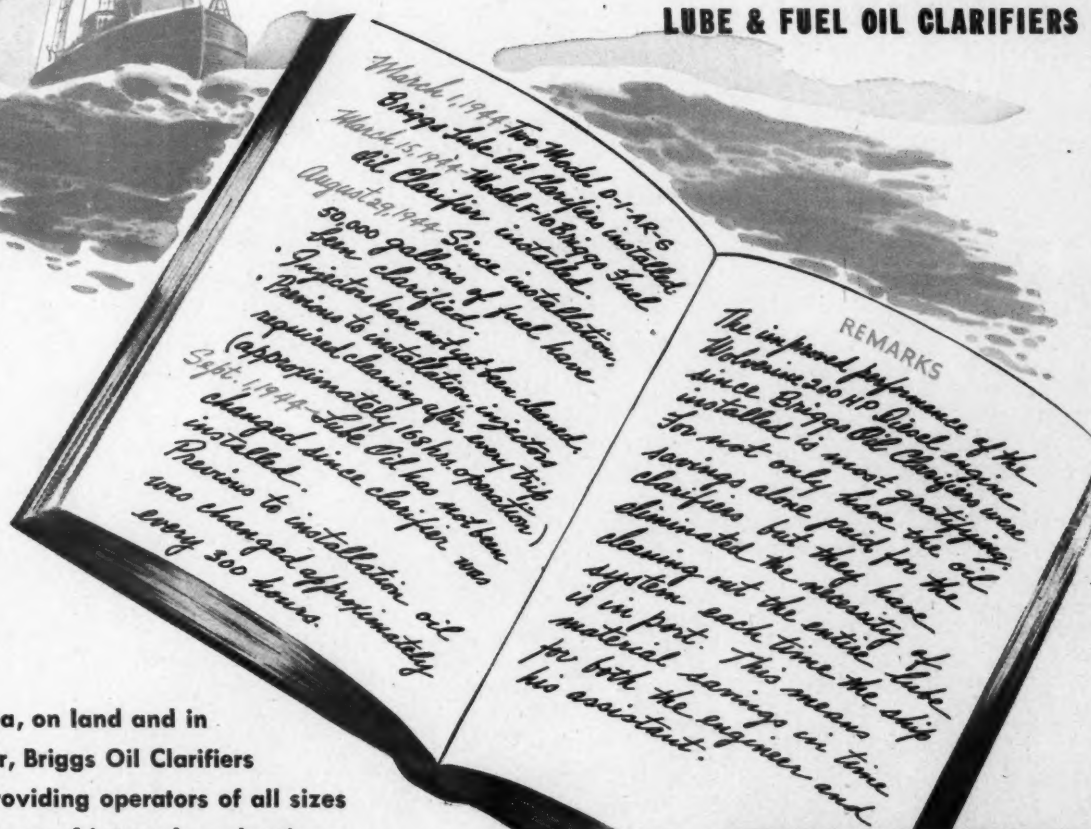 LUBE & FUEL OIL CLARIFIERS
March 1, 1944 - Two Model D-1-AR-S
Briggs Lube Oil Clarifiers installed
March 15, 1944 - Model F-10 Briggs Fuel
Oil Clarifier installed.
August 29, 1944 Since installation,
50,000 gallons of fuel have
been clarified.
Injectors have not yet been cleaned.
Previous to installation, injectors
required cleaning after every trip
(approximately 168 hrs. operation)
Sept. 1, 1944 - Lube Oil has not been
changed since clarifier was
installed.
Previous to installation oil
was changed approximately
every 300 hours.
REMARKS
The improved performance of the
Wolverine 200 HP Diesel engine
since Briggs Oil Clarifiers were
installed is most gratifying.
For not only have the oil
savings alone paid for the
clarifiers but they have
eliminated the necessity of
cleaning out the entire lube
system each time the ship
is in port. This means
material savings in time
for both the engineer and
his assistant.
a, on land and in
r, Briggs Oil Clarifiers
roviding operators of all sizes